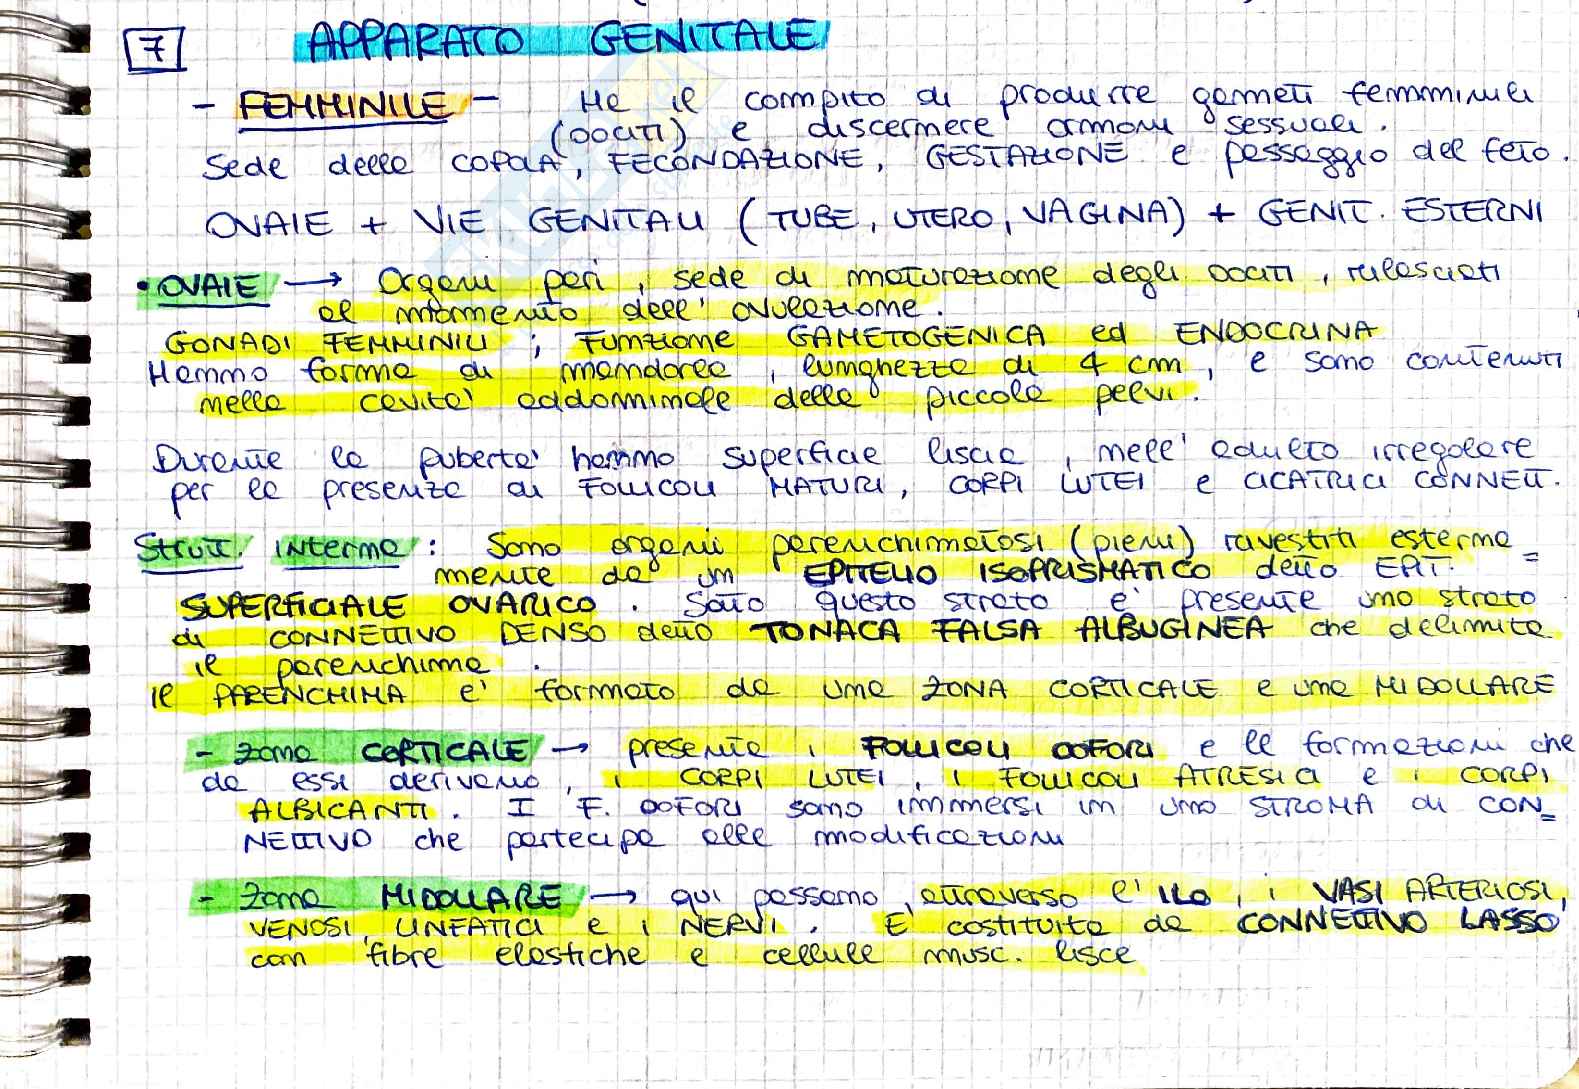 7 APPARATO GENITALE
- FEMMINILE - Ha il compito di produrre gameti femminili
(oociti) e discernere ormoni sessuali.
Sede della COPULA, FECONDAZIONE, GESTAZIONE e passaggio del feto.
OVAIE + VIE GENITALI (TUBE, UTERO, VAGINA) + GENIT. ESTERNI
• OVAIE → Organi pari, sede di maturazione degli oociti, rilasciati
al momento dell'ovulazione.
GONADI FEMMINILI; Funzione GAMETOGENICA ed ENDOCRINA
Hanno forma di mandorla, lunghezza di 4 cm, e sono contenuti
nella cavità addominale della piccola pelvi.
Durante la pubertà hanno superficie liscia, nell'adulto irregolare
per la presenza di FOLLICOLI MATURI, CORPI LUTEI e CICATRICI CONNETT.
Strutt. interna: Sono organi parenchimatosi (pieni) rivestiti esterna=
mente da un EPITELIO ISOPRISMATICO detto EPIT.
SUPERFICIALE OVARICO. Sotto questo strato è presente uno strato
di CONNETTIVO DENSO detto TONACA FALSA ALBUGINEA che delimita
il parenchima.
Il PARENCHIMA è formato da una ZONA CORTICALE e una MIDOLLARE
- Zona CORTICALE → presenta i FOLLICOLI OOFORI e le formazioni che
da essi derivano, i CORPI LUTEI, i FOLLICOLI ATRESICI e i CORPI
ALBICANTI. I F. OOFORI sono immersi in uno STROMA di CON=
NETTIVO che partecipa alle modificazioni
- Zona MIDOLLARE → qui passano, attraverso l'ilo, i VASI ARTERIOSI,
VENOSI, LINFATICI e i NERVI. È costituita da CONNETTIVO LASSO
con fibre elastiche e cellule musc. lisce